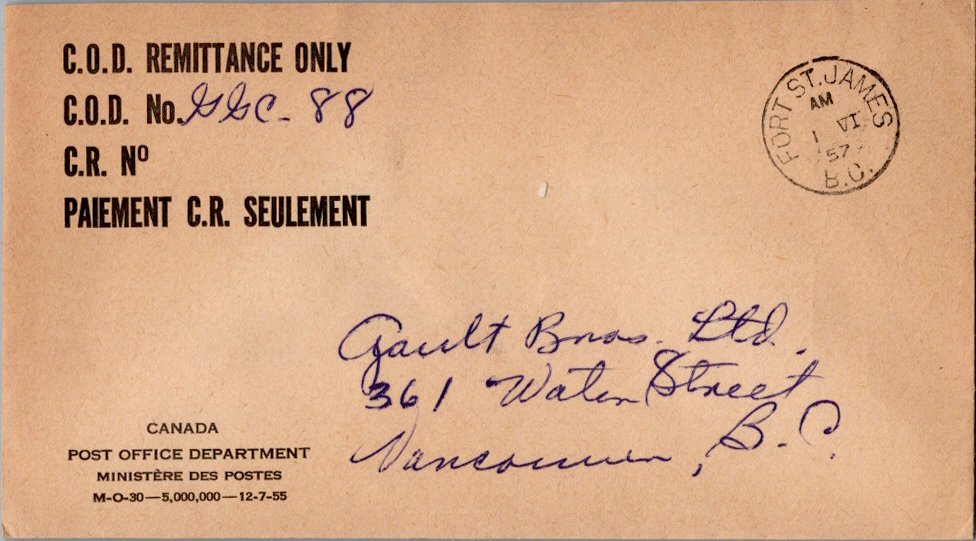 C.O.D. REMITTANCE ONLY
C.O.D. No. GGC- 88
C.R. Nº
PAIEMENT C.R. SEULEMENT
FORT ST. JAMES
AM
1 VI
57
B.C.
Gault Bros. Ltd.
361 Water Street
Vancouver, B.C.
CANADA
POST OFFICE DEPARTMENT
MINISTÈRE DES POSTES
M-O-30—5,000,000—12-7-55